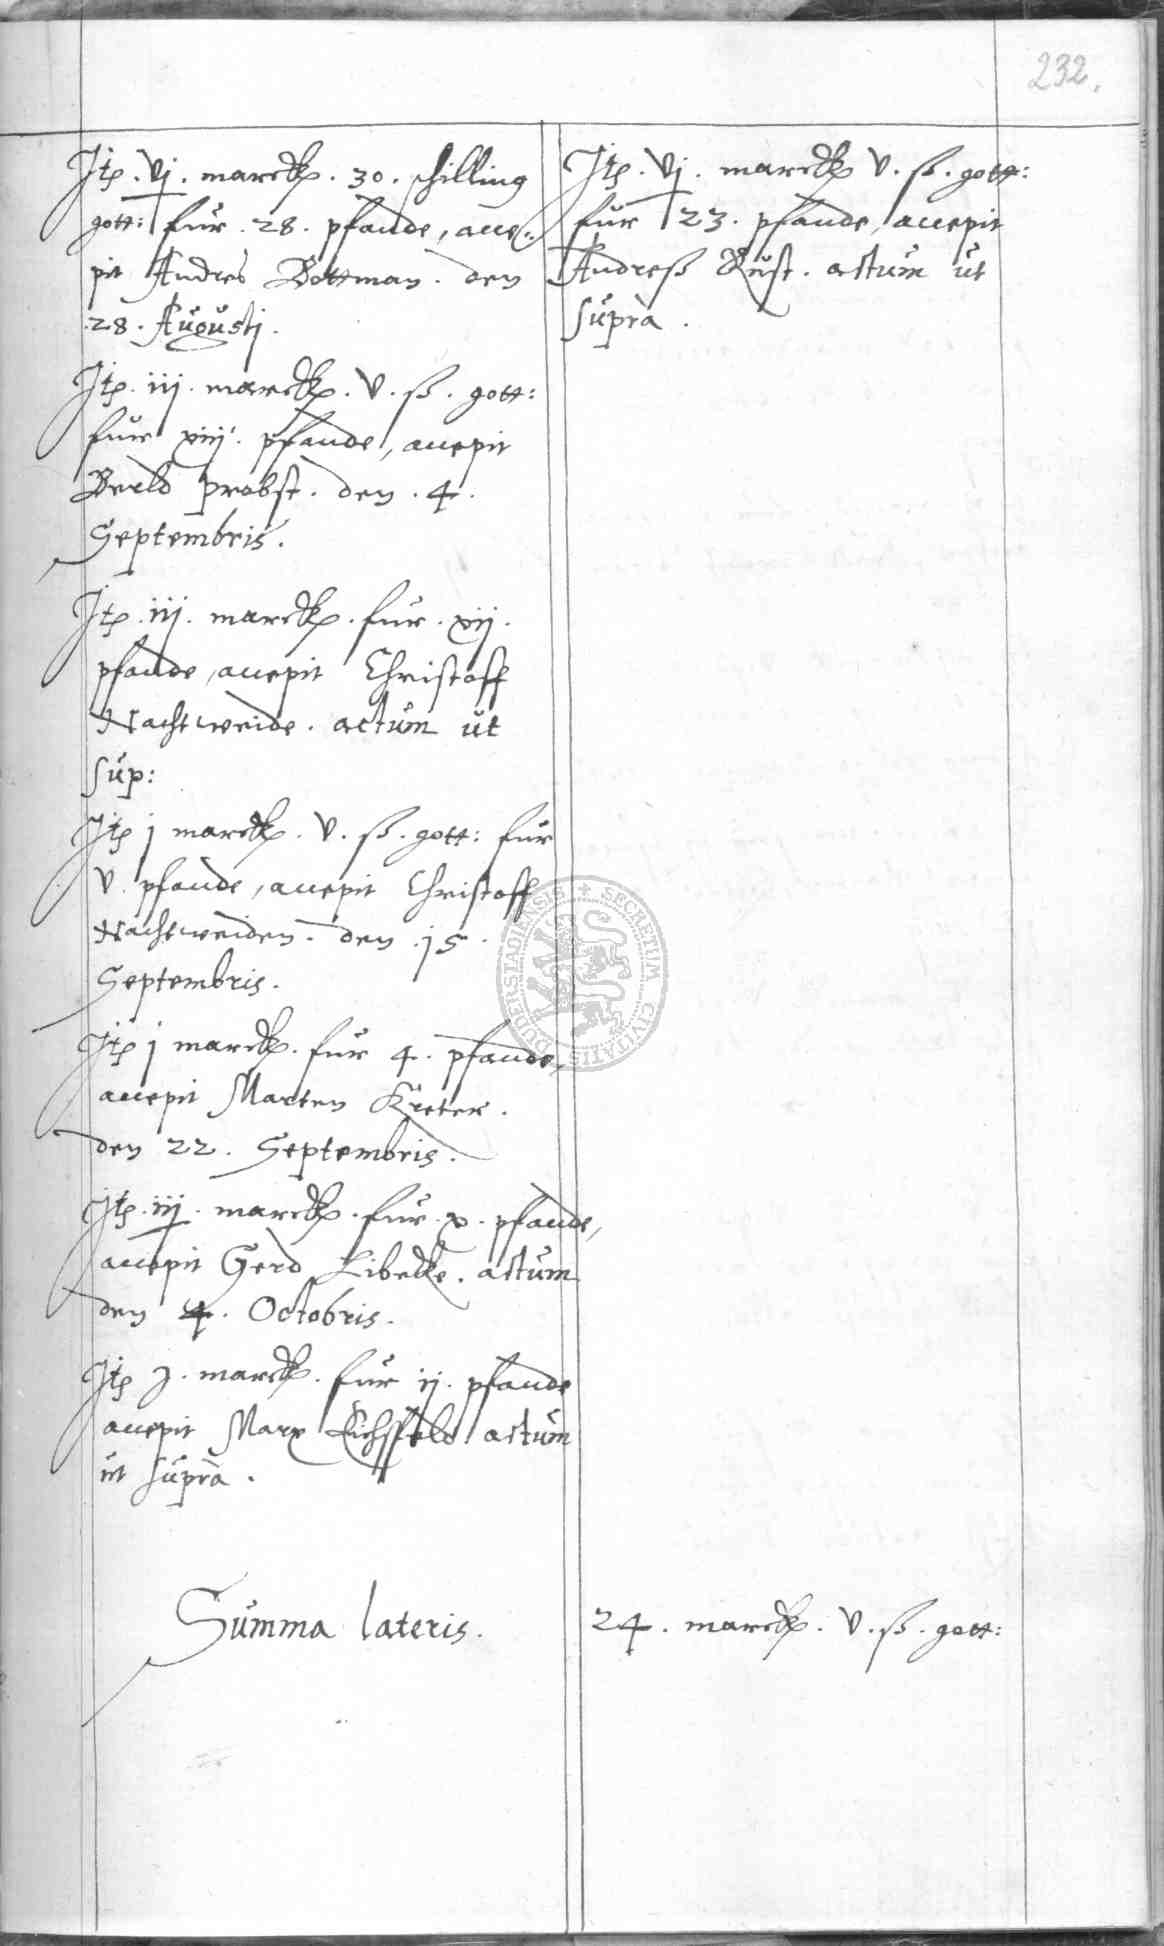 232.
Jtē. vj. marckē. 30. schilling
gott: für. 28. pfande, acce:
pit Andres Bottman. den
28. Augustj.
Jtē. iij. marckē. v. ß. gott:
fuer xiiij. pfande, accepit
Berld probst. den. 4.
Septembris.
Jtē. iij. marckē. für. xij.
pfande, accepit Christoff
Nachtweide. actum ut
sup:
Jtē j marckē. v. ß. gott: für
v. pfande, accepit Christoff
Nachtweiden. den. 15.
Septembris.
Jtē j marckē. für 4. pfande,
accepit Marten Kreter.
den 22. Septembris.
Jtē. iij. marckē. für. x. pfande,
accepit Gerd Libecke. actum
den 4. Octobris.
Jtē j. marckē. für ij. pfande
accepit Marx Eichsfeld actum
ut supra.
Jtē. vj. marckē v. ß. gott:
für 23. pfande, accepit
Andreß Kust. actum ut
supra.
Summa lateris. 24. marckē. v. ß. gott:
SECRETUM CIVITATIS DUDERSTADIENSIS